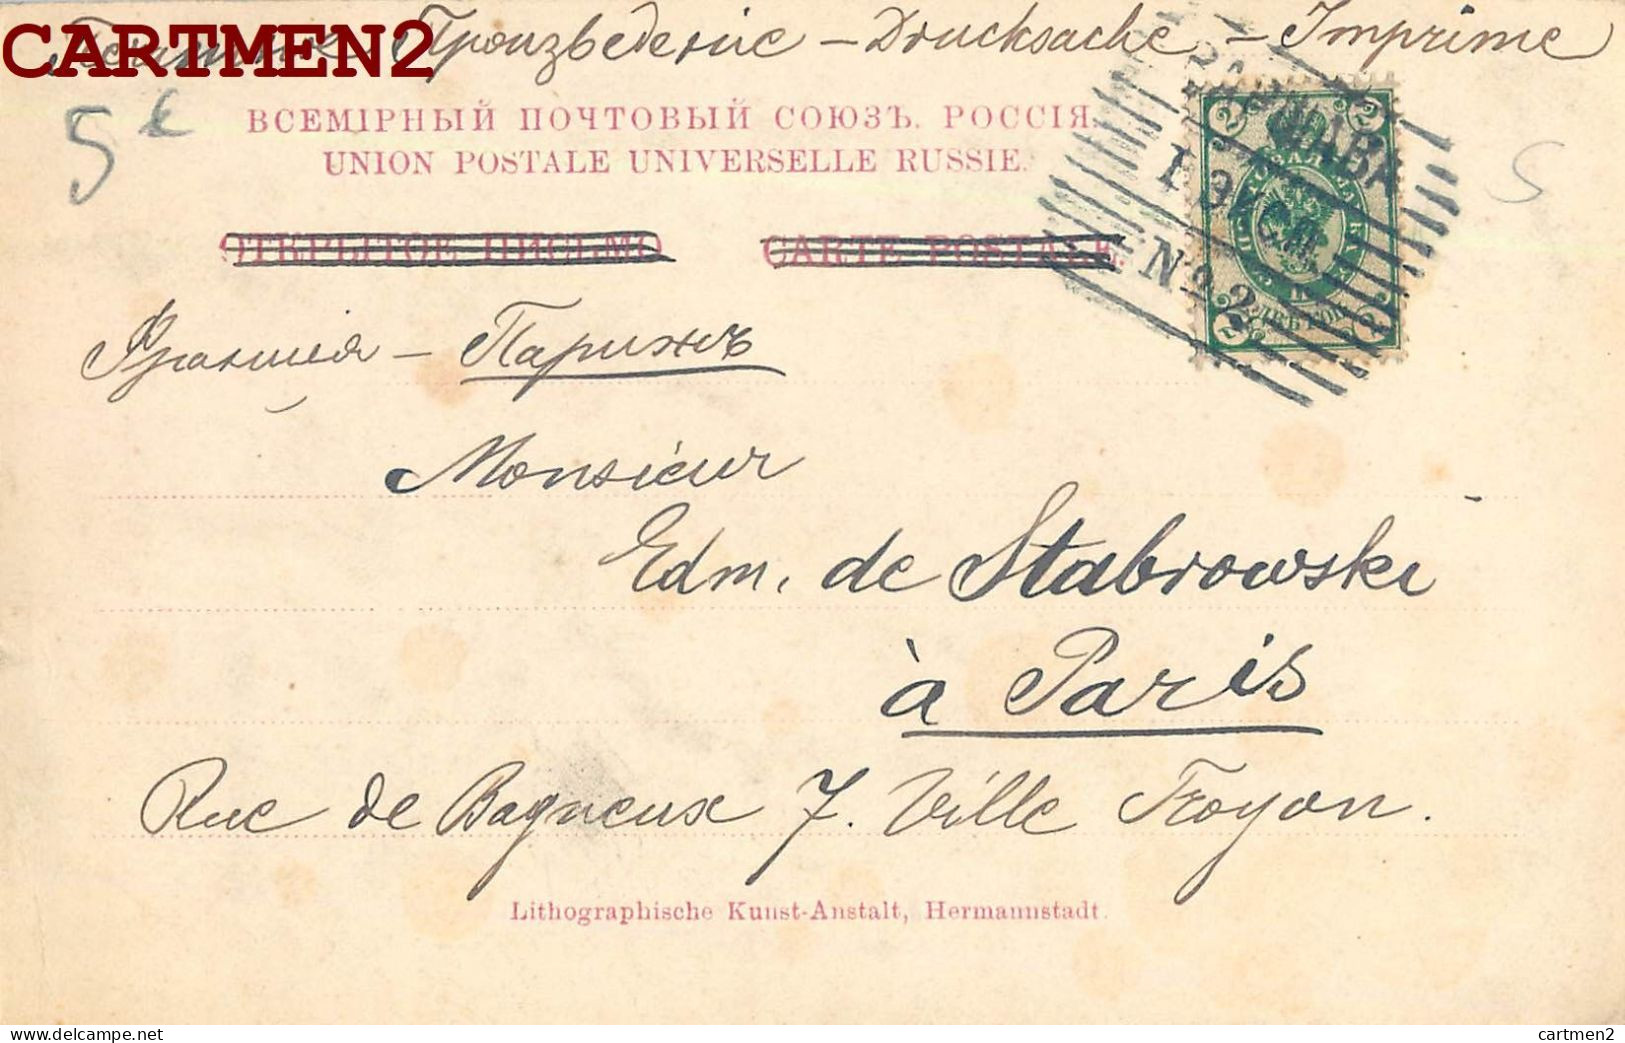 CARTMEN2
Произведение – Drucksache – Imprimé
5€
ВСЕМІРНЫЙ ПОЧТОВЫЙ СОЮЗЪ. РОССІЯ.
UNION POSTALE UNIVERSELLE RUSSIE.
S
ОТКРЫТОЕ ПИСЬМО CARTE POSTALE.
2 2
ШАВА
1
№ 2
2
Франція – Парижъ
Monsieur
Edm. de Stabrowski
à Paris
Rue de Bagneux 7. Ville Troyon.
Lithographische Kunst-Anstalt, Hermannstadt.
https://www.delcampe.net
cartmen2